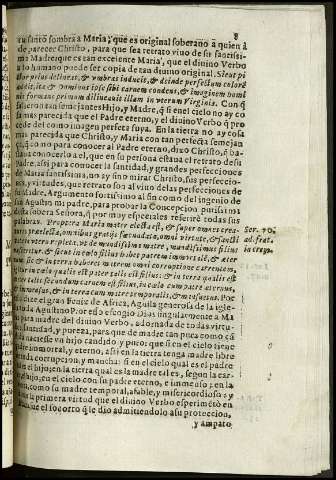 8
su santo sombra a Maria, que es original soberano à quien à
de parecer Christo, para que sea retrato viuo de su santissi-
ma Madre: que es tan excelente Maria, que el diuino Verbo
en lo humano puede ser copia de tan diuino original. Sicut pi
prius delineat, & vmbras inducit, & deinde perfectum colorē
addit, ita & Dominus ipse sibi carnem condens, & imaginem homi
nis formans primum dilineauit illam in vterum Virginis. Con q̃
fueron tan semejantes Hijo, y Madre, q̃ si en el cielo no ay co-
sa mas parecida que el Padre eterno, y el diuino Verbo q̃ pro
cede del como imagen perfeta suya. En la tierra no ay cosa
mas parecida que Christo, y Maria con tan perfecta semejan
ça, que como para no conocer al Padre eterno, dixo Christo, q̃ bas-
taua conocerlo a el, que en su persona estaua el retrato de su
Padre, assi para conocer la santidad, y grandes perfecciones
de Maria santissima, no ay sino mirar Christo, sus perfeccio-
nes, y virtudes, que retrato son al viuo de las perfecciones de
su Madre, Argumento fortissimo al fin como del ingenio de
san Agustin mi padre, para probar la Concepcion purissima
desta sobera Señora, q̃ por muy especiales referirè todas sus
palabras. Propterea Maria mater electa est, & super omnes crea-
turas præelecta, omnibus gratijs fœcundata, omni virtute, & sancti
tatis vtero repleta, vt de mundissima matre, mundissimus filius
nasceretur, & sicut in cœlo filius habet patrem immortalē, & æter
num, & sic in terra haberet matrem omni corruptione carentem,
igitur in cœlo qualis est pater talis est filius, & in terra qualis est ma-
ter talis secundum carnem est filius, in cœlo cum patre æternus,
immensus, & in terra cum mater temporalis, & mansuetus. Poc
dixo que el gran Fenix de Africa, Aguila generosa de la igle-
sia Agustino. Por esso escogio Dios singularmente a Ma
ria para madre del diuino Verbo, adornada de todas las virtu-
des, santidad, y pureza, para que de madre tan pura como q̃a
naciesse en hijo candido, y puro: que si en el cielo tiene
Padre inmortal, y eterno, assi en la tierra tenga madre libre
de toda corrupcion, y mancha: si en el cielo qual es el padre
es el hijo; en la tierra qual es la madre tal es, segun la car-
ne el hijo, en el cielo con su padre eterno, e inmenso; en la
tierra como su madre temporal, afable, y misericordioso: y
la primera virtud que el diuino Verbo esperimẽtò en
Maria fue el socorro q̃ le dio admitiendolo a su proteccion,
y amparo
Ser. 20.
ad frat.
in erem.